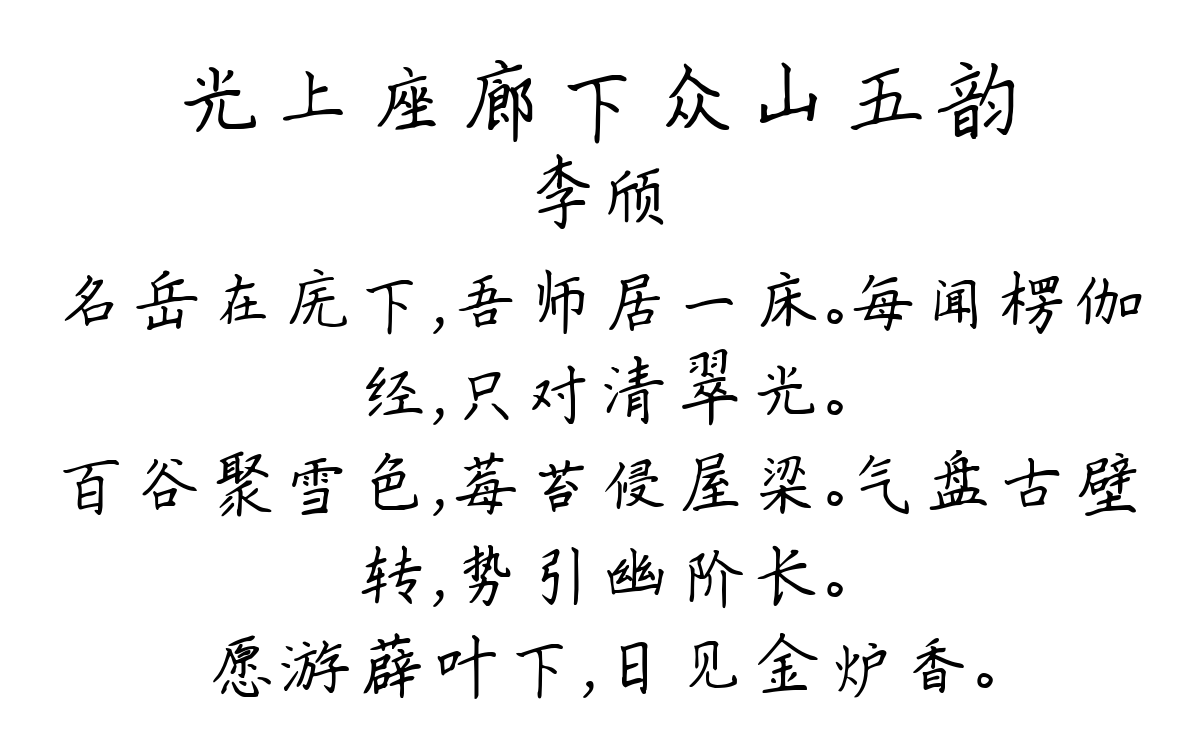 光上座廊下众山五韵
李颀
名岳在庑下,吾师居一床。每闻楞伽
经,只对清翠光。
百谷聚雪色,莓苔侵屋梁。气盘古壁
转,势引幽阶长。
愿游薜叶下,日见金炉香。